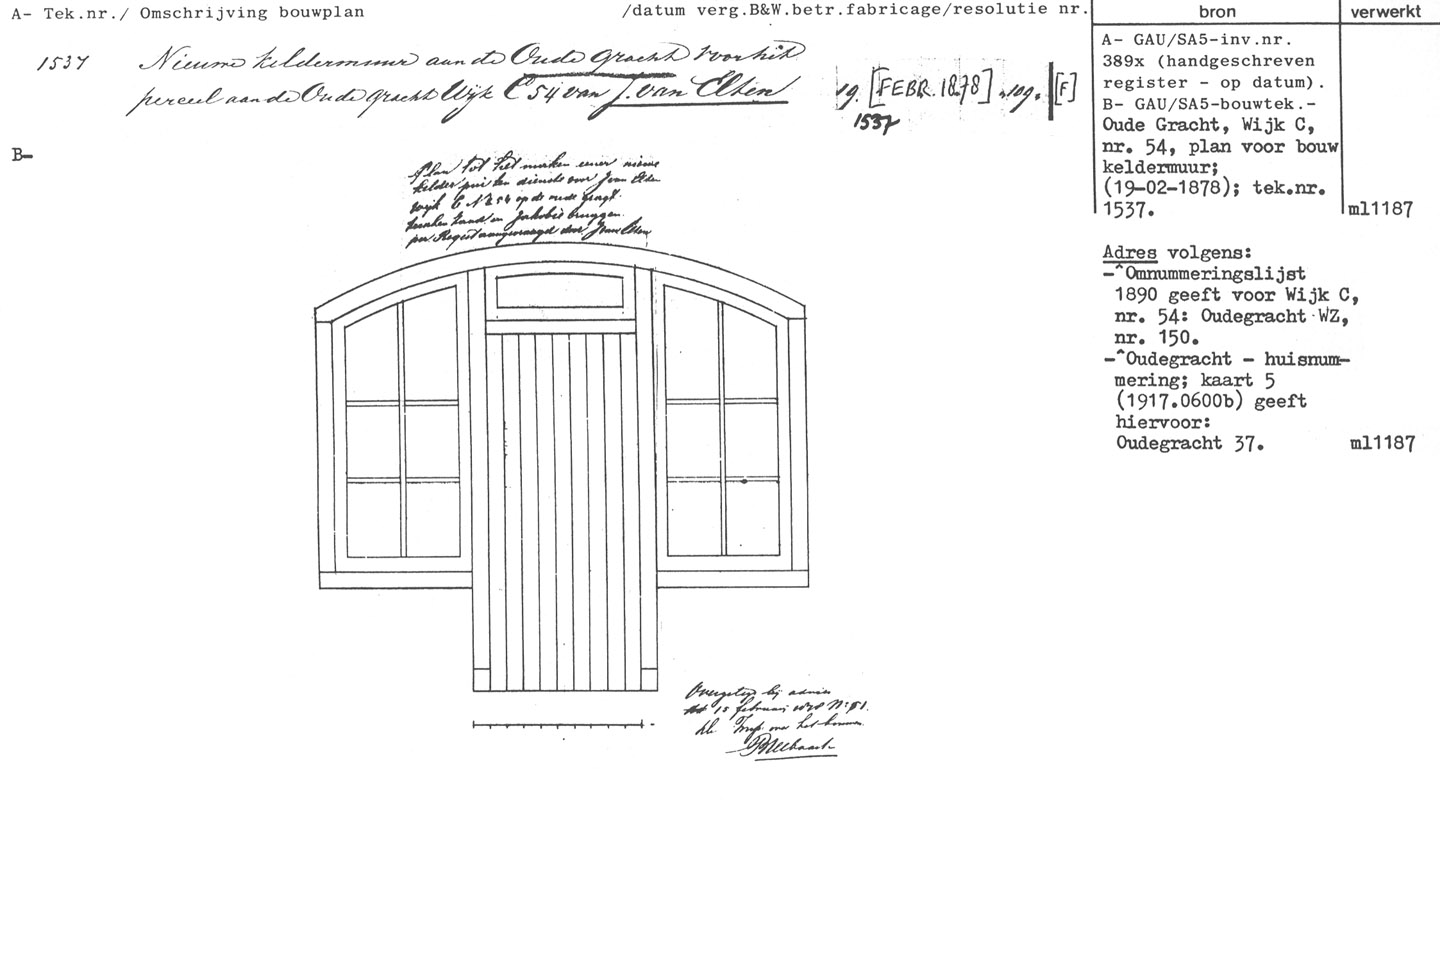 A- Tek.nr./ Omschrijving bouwplan /datum verg.B&W.betr.fabricage/resolutie nr.
1537 Nieuwe keldermuur aan de Oude gracht voor het
perceel aan de Oude gracht Wijk C 54 van J. van Elten
19. [FEBR. 1878] .109. [F]
1537
B-
Plan tot het maken eener nieuwe
kelder pui ten dienste voor J van Elten
wijk C No 54 op de oude gragt
en Jakobie bruggen
per Request aangevraagd door J van Elten
Overgelegd bij advies
15 februarij No 51.
de Insp. over het bouwen
bron
A- GAU/SA5-inv.nr.
389x (handgeschreven
register - op datum).
B- GAU/SA5-bouwtek.-
Oude Gracht, Wijk C,
nr. 54, plan voor bouw
keldermuur;
(19-02-1878); tek.nr.
1537.
Adres volgens:
-^Omnummeringslijst
1890 geeft voor Wijk C,
nr. 54: Oudegracht WZ,
nr. 150.
-^Oudegracht - huisnum-
mering; kaart 5
(1917.0600b) geeft
hiervoor:
Oudegracht 37.
verwerkt
ml1187
ml1187